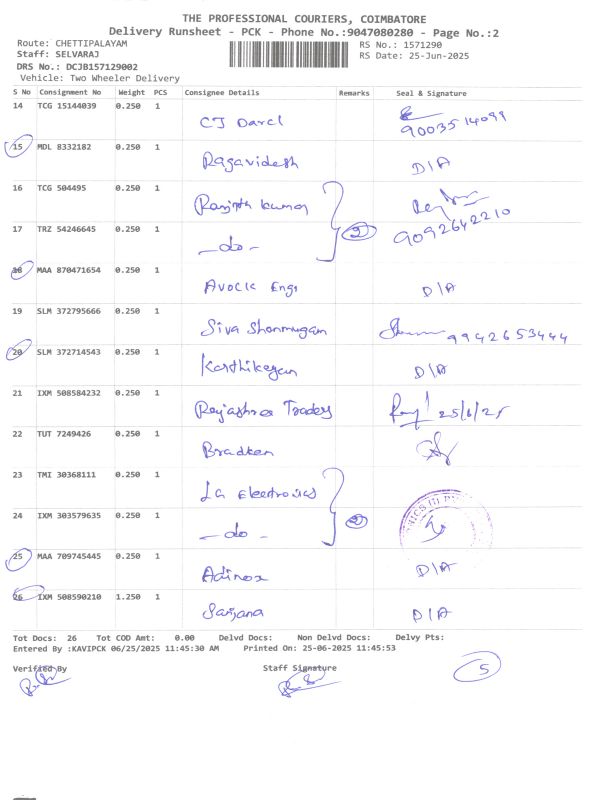 THE PROFESSIONAL COURIERS, COIMBATORE
Delivery Runsheet - PCK - Phone No.:9047080280 - Page No.:2
Route: CHETTIPALAYAM RS No.: 1571290
Staff: SELVARAJ RS Date: 25-Jun-2025
DRS No.: DCJB157129002
Vehicle: Two Wheeler Delivery
S No Consignment No Weight PCS Consignee Details Remarks Seal & Signature
14 TCG 15144039 0.250 1 CJ Darcl
15 MDL 8332182 0.250 1 Ragavidesh D/A
16 TCG 504495 0.250 1 Ranjith kumar
17 TRZ 54246645 0.250 1 - do - 2 9092642210
18 MAA 870471654 0.250 1 Avock Engs D/A
19 SLM 372795666 0.250 1 Siva Shanmugam 9942653444
20 SLM 372714543 0.250 1 Karthikeyan D/A
21 IXM 508584232 0.250 1 Rajashree Traders 25/6/25
22 TUT 7249426 0.250 1 Bradken
23 TMI 30368111 0.250 1 La Electronics
24 IXM 303579635 0.250 1 - do - 2
25 MAA 709745445 0.250 1 Adinox D/A
26 IXM 508590210 1.250 1 Sanjana D/A
Tot Docs: 26 Tot COD Amt: 0.00 Delvd Docs: Non Delvd Docs: Delvy Pts:
Entered By :KAVIPCK 06/25/2025 11:45:30 AM Printed On: 25-06-2025 11:45:53
Verified By Staff Signature 5